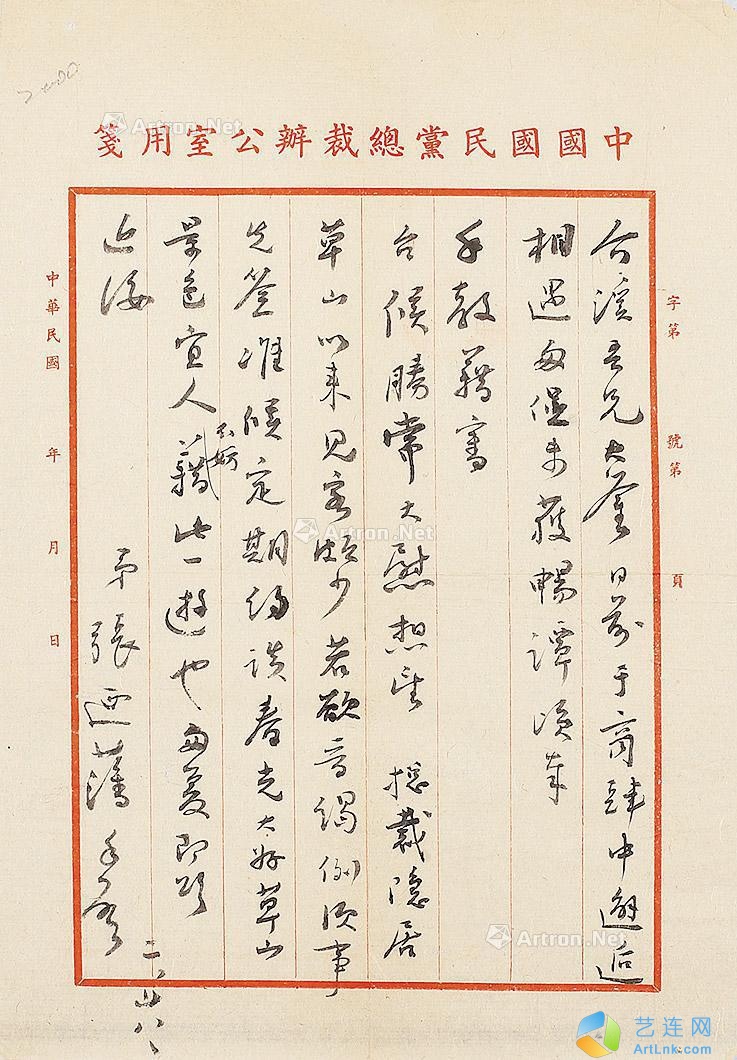 中國國民黨總裁辦公室用箋
字第 號第 頁
谷溪吾兄大鑒日前于商肆中邂逅
相遇匆促未獲暢譚頃奉
手教藉審
台候勝常大慰想望 總裁隱居
草山以來見客甚少若欲晉謁例須事
先簽准候定期約談春光大好草山
景色宜人不妨藉此一遊也匆復即頌
近綏
弟張廼藩手啟
二、廿八、
中華民國 年 月 日
Artron.Net
Artron.Net
Artron.Net
Artron.Net
艺连网
ArtLnk.com